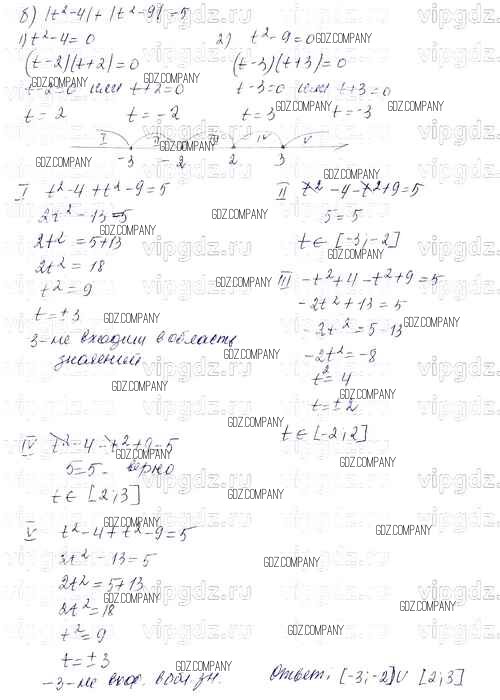 б) |t²-4| + |t²-9| = 5
1) t²-4=0
(t-2)(t+2)=0
t-2=0 или t+2=0
t=2 t=-2
2) t²-9=0
(t-3)(t+3)=0
t-3=0 или t+3=0
t=3 t=-3
I II III IV V
-3 -2 2 3
I t²-4+t²-9=5
2t²-13=5
2t²=5+13
2t²=18
t²=9
t=±3
3-не входит в область
значений
II t²-4-t²+9=5
5=5
t∈[-3;-2]
III -t²+4-t²+9=5
-2t²+13=5
-2t²=5-13
-2t²=-8
t²=4
t=±2
t∈[-2;2]
IV t²-4-t²+9=5
5=5- верно
t∈[2;3]
V t²-4+t²-9=5
2t²-13=5
2t²=5+13
2t²=18
t²=9
t=±3
-3-не вход. в обл. зн.
Ответ: [-3;-2]∪[2;3]
GDZ.COMPANY
vipgdz.ru